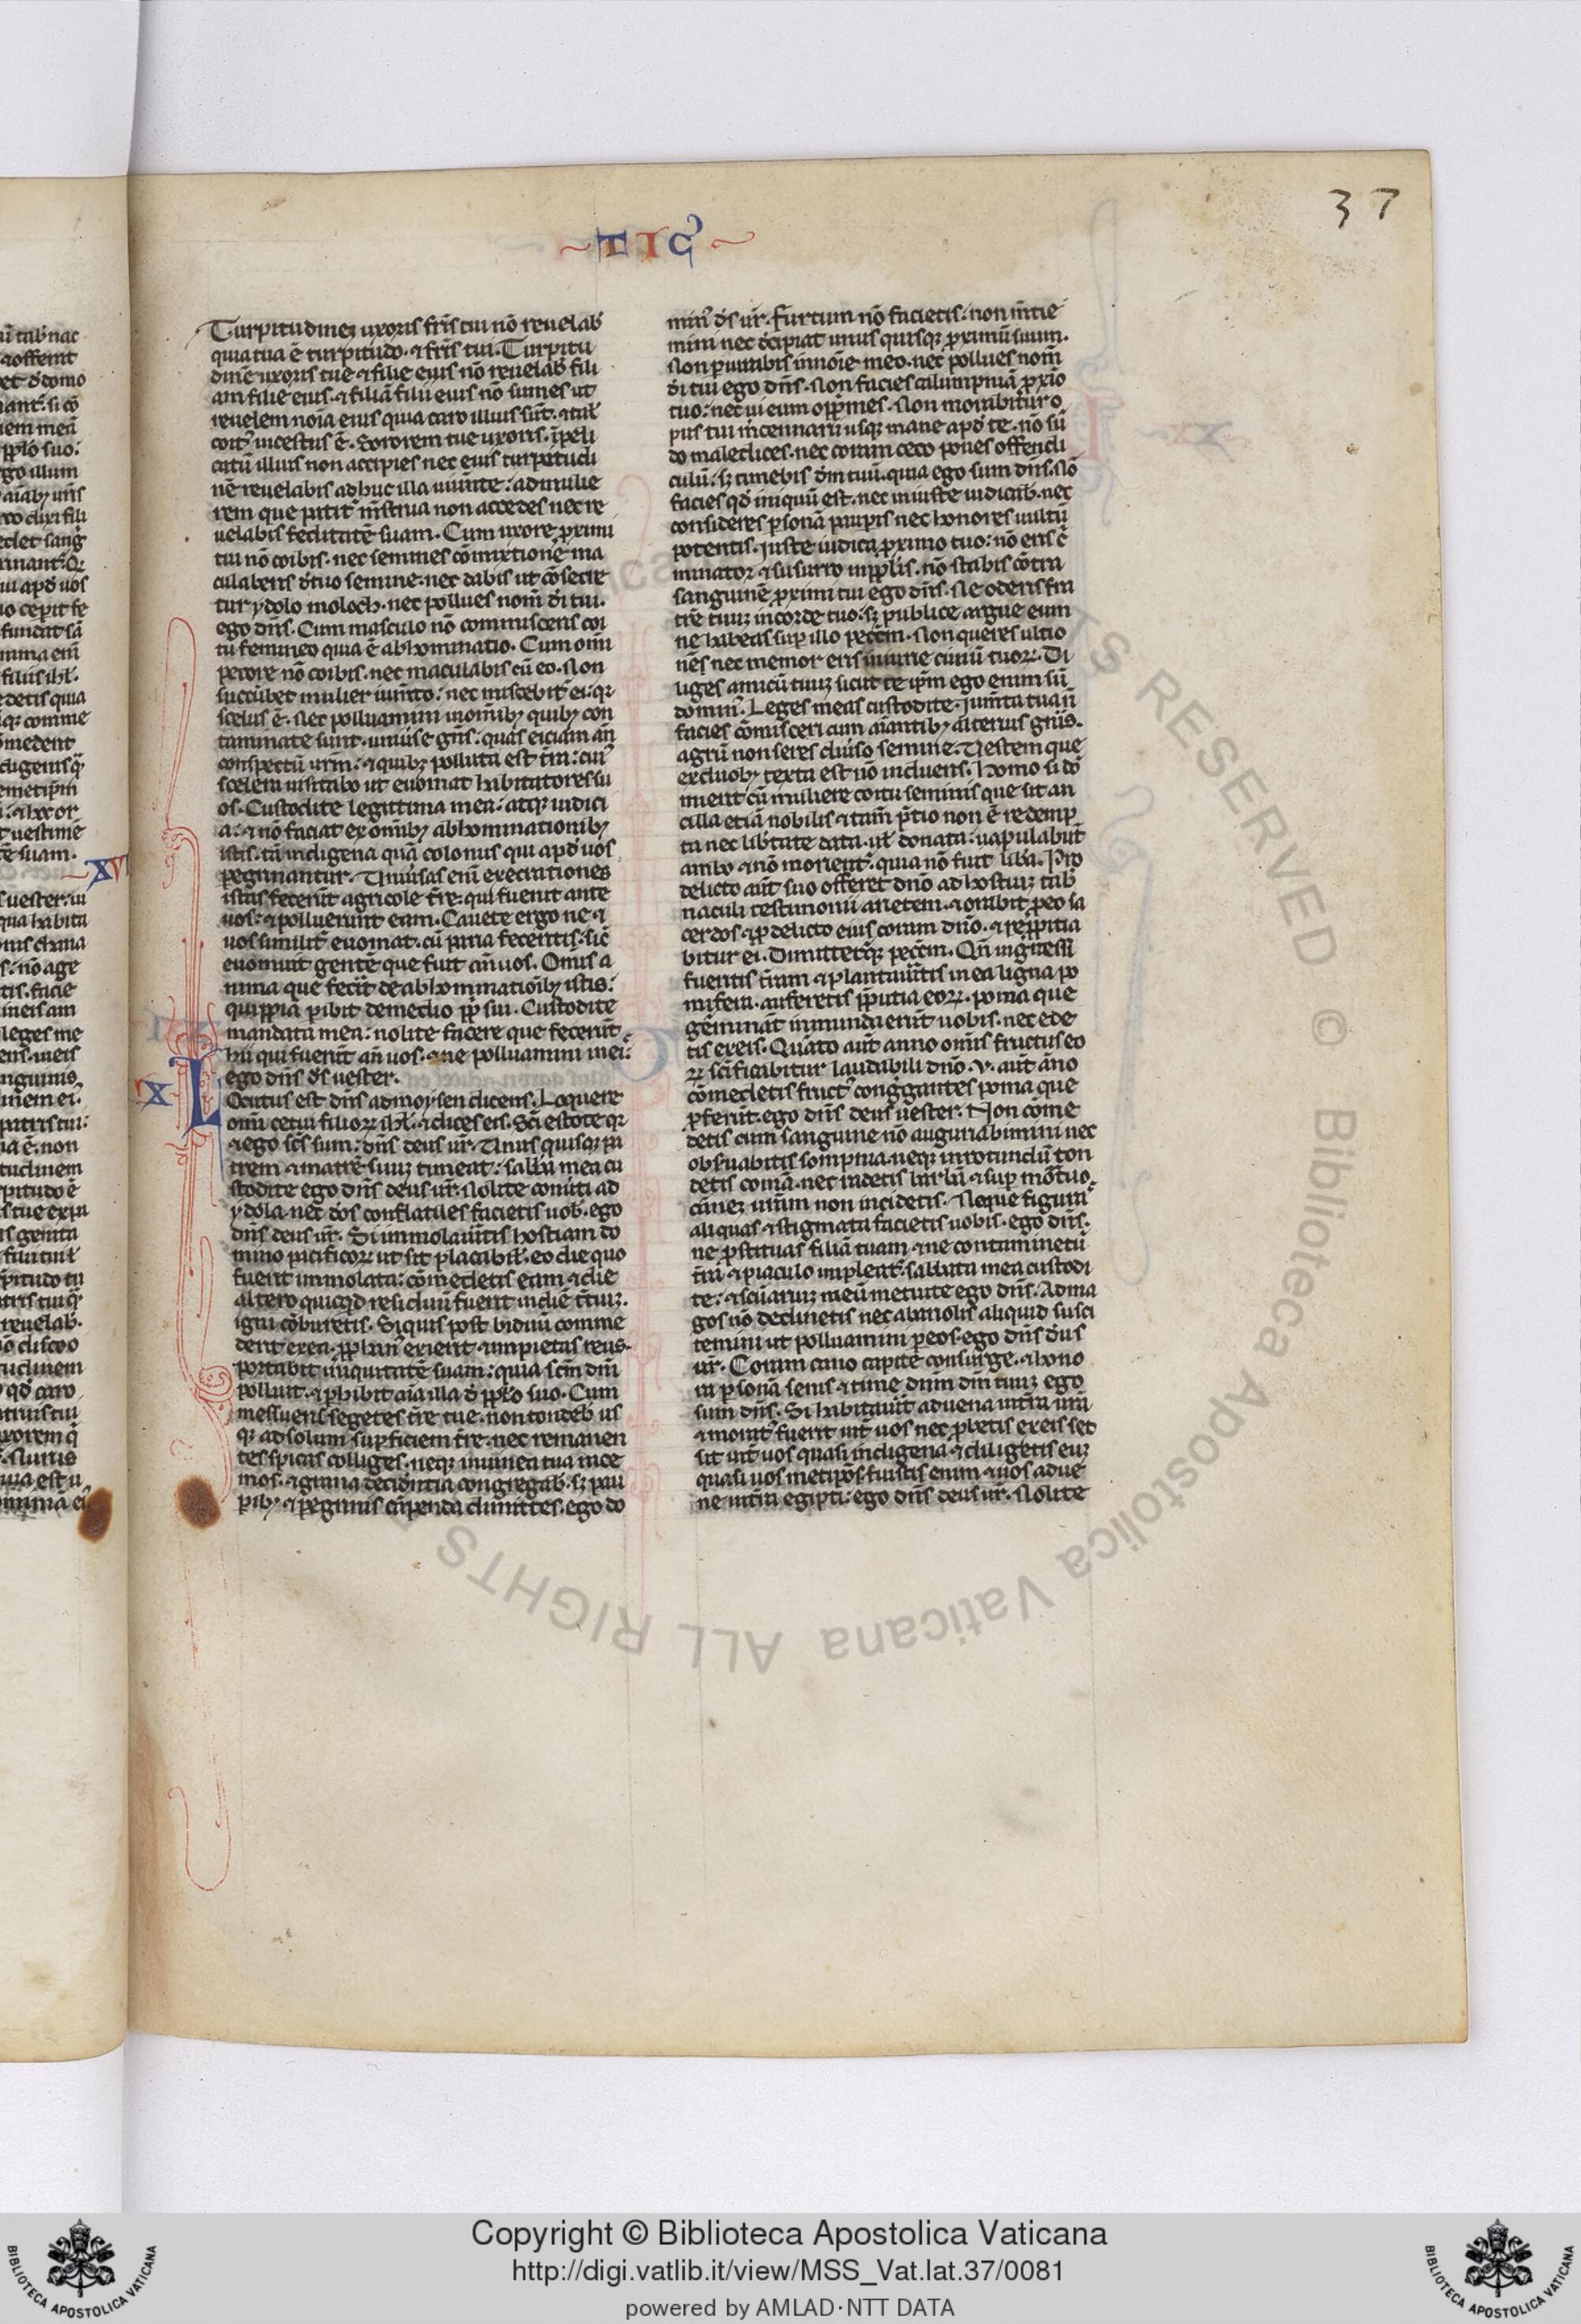 37
TIC
Turpitudinez uxoris fr̄is tui nō reuelab̄
quia tua ē turpitudo. ⁊ fr̄is tui. Turpitu
dinē uxoris tue ⁊ filie eius nō reuelab̄ fili
am filie eius. ⁊ filiā filii eius nō sumes ut
reuelem noīa eius quia caro illius sūt. ⁊ tal̄
coit᾽ incestus ē. Sororem tue uxoris. ī peli
catū illius non accipies nec eius turpitudi
nē reuelabis adhuc illa uiuēte: ad mulie
rem que patit᾽ m̄strua non accedes nec re
uelabis feditatē suam. Cum uxore proximi
tui nō coibis. nec seminis cōmixtione ma
culaberis d̄ tuo semine. nec dabis ut cōsecre
tur ydolo moloch. nec pollues nom̄ d̄i tui.
ego dn̄s. Cum masculo nō commisceris coi
tu femineo quia ē abhominatio. Cum omī
pecore nō coibis. nec maculabis cū eo. Non
succūbet mulier iumēto: nec miscebit᾽ ei: qꝛ
scelus ē. Nec polluamini in om̄ibꝫ quibꝫ con
taminate sunt. uniuīse gn̄tes: quas eiciam an̄
conspectū urm̄: ⁊ quibꝫ polluta est t̄ra: cui᾽
scelera uisitabo ut euomat habitatores su
os. Custodite legittima mea: atqꝫ iudici
a: ⁊ nō faciat᾽ ex om̄ibꝫ abhominationibꝫ
istis. tā indigena quā colonus qui apd̄ uos
peginantur. Uniuīsas enī execrationes
istas fecerūt agricole t̄re: qui fuerūt ante
uos: ⁊ polluerunt eam. Cauete ergo ne ⁊
uos similit᾽ euomat. cū paria feceritis. sic̄
euomuit gentē que fuit an̄ uos. Om̄is a
nima que fecit̄ de abhominatiōibꝫ istis:
quippiā peribit de medio pp̄li sui. Custodite
mandata mea: nolite facere que fecerūt
hii qui fuerūt an̄ uos. ⁊ ne polluamini in ei:
ego dn̄s d̄s uester.
IX
Locutus est dn̄s ad moysen dicens. Loquere
omī cetui filioꝝ isr̄l. ⁊ dices eis. Sc̄i estote qꝛ
⁊ ego sc̄s sum: dn̄s deus ur̄. Unus quisqꝫ pa
trem ⁊ matrē suuꝫ timeat: sabb̄a mea cu
stodite ego dn̄s deus ur̄. Nolite conuīti ad
ydola. nec d̄os conflatiles facietis uob̄. ego
dn̄s deus ur̄. Si immolaūitis hostiam do
mino pacificoꝝ ut sit placabil̄. eo die quo
fuerit immolata: cōmedetis eam ⁊ die
altero quicqd̄ residuū fuerit in diē t̄tiuꝫ.
igni cōburetis. Siquis post biduū comme
derit ex ea. pphan᾽ exierit ⁊ impietatis reus.
portabit iniquitatē suam: quia sc̄m dn̄i
polluit. ⁊ peribit aīa illa d̄ pp̄lo suo. Cum
messueris segetes t̄re tue. non tondeb̄ us
qꝫ ad solum suꝑficiem t̄re. nec remanen
tes spicas colliges. neqꝫ in uinea tua race
mos. ⁊ grana decidētia congregab̄. sꝫ pau
ꝑibꝫ ⁊ ꝑeginis carpenda dimittes. ego do
min᾽ d̄s ur̄. Furtum nō facietis: non mētie
mini nec decipiat unus quisqꝫ proximū suum.
Non periurabis in noīe meo. nec pollues nom̄
d̄i tui ego dn̄s. Non facies calumpniā proxīo
tuo: nec ui eum opp̄mes. Non morabitur o
pus tui mercennarii usqꝫ mane apd̄ te. nō sur
do maledices. nec coram ceco pones offendi
culū: sꝫ timebis dn̄m tuū. quia ego sum dn̄s. Nō
facies qd̄ iniquū est. nec iniuste iudicab̄. nec
consideres ꝑsonā pauꝑis nec honores uultū
potentis. Iuste iudica proximo tuo: nō eris c̄
minator ⁊ susurro in pp̄lis. nō stabis cōtra
sanguinē proximi tui ego dn̄s. Ne oderis fra
trē tuuꝫ in corde tuo: sꝫ publice argue eum
ne habeas suꝑ illo pecc̄m. Non queres ultio
nēs nec memor eris iniurie ciuiū tuoꝝ. Di
liges amicū tuuꝫ sicut te ip̄m ego enim sū
domin᾽. Leges meas custodite. iumēta tua n̄
facies cōmisceri cum aīantibꝫ alterius gn̄is.
agrū non seres diuiso semine. Uestem que
ex duobꝫ texta est nō indueris. Homo si dō
mierit cū muliere coitu seminis que sit an
cilla etiā nobilis ⁊ tam̄ p̄tio non ē redemp
ta nec lib̄tate data. ul̄ donata: uapulabūt
ambo ⁊ nō morient᾽. quia nō fuit lib̄a. Pro
delicto aūt suo offeret dn̄o ad hostiuꝫ tab̄
naculi testimonii arietem. ⁊ orabit ꝑ eo sa
cerdos ⁊ p delicto eius coram dn̄o. ⁊ repp̄itia
bitur ei. Dimittet᾽qꝫ pecc̄m. Qn̄ ingressi
fueritis t̄ram ⁊ plantaūitis in ea ligna po
mifera. auferetis pp̄utia eoꝝ. poma que
gēminat̄ inmunda erūt uobis. nec ede
tis ex eis. Quarto aūt anno om̄is fructus eo
ꝝ sc̄ificabitur laudabili dn̄o. v. aūt anno
cōmedetis fruct᾽ congregantes poma que
proferūt. ego dn̄s deus uester. Non cōme
detis cum sanguine nō auguriabimini nec
obseruabitis sompnia. neqꝫ in rotundū ton
detis comā. nec radetis barbā. ⁊ suꝑ mōtuo
carnez ur̄am non incidetis. Neque figura
aliquas ⁊ stigmata facietis uobis. ego dn̄s.
ne prostituas filiā tuam. ⁊ ne contaminetū
t̄ra ⁊ piaculo impleat᾽. sabbata mea custodi
te: ⁊ sc̄uariuꝫ meū metuite ego dn̄s. Ad ma
gos nō declinetis nec ab ariolis aliquid susci
temini ut polluamini ꝑ eos. ego dn̄s d̄us
ur̄. Coram cano capite consurge. ⁊ hono
ra ꝑsonā senis ⁊ time dn̄m dn̄m tuuꝫ ego
sum dn̄s. Si habitaūit aduena in t̄ra ur̄a
⁊ morat᾽ fuerit int̄ uos nec probetis ex eis set
sit int̄ uos quasi indigena. ⁊ diligetis euꝫ
quasi uos metipōs. fuistis enim ⁊ uos adue
ne in t̄ra egipti: ego dn̄s deus ur̄. Nolite
Copyright © Biblioteca Apostolica Vaticana
http://digi.vatlib.it/view/MSS_Vat.lat.37/0081
powered by AMLAD·NTT DATA
BIBLIOTECA APOSTOLICA VATICANA
BIBLIOTECA APOSTOLICA VATICANA
ALL RIGHTS RESERVED © Biblioteca Apostolica Vaticana